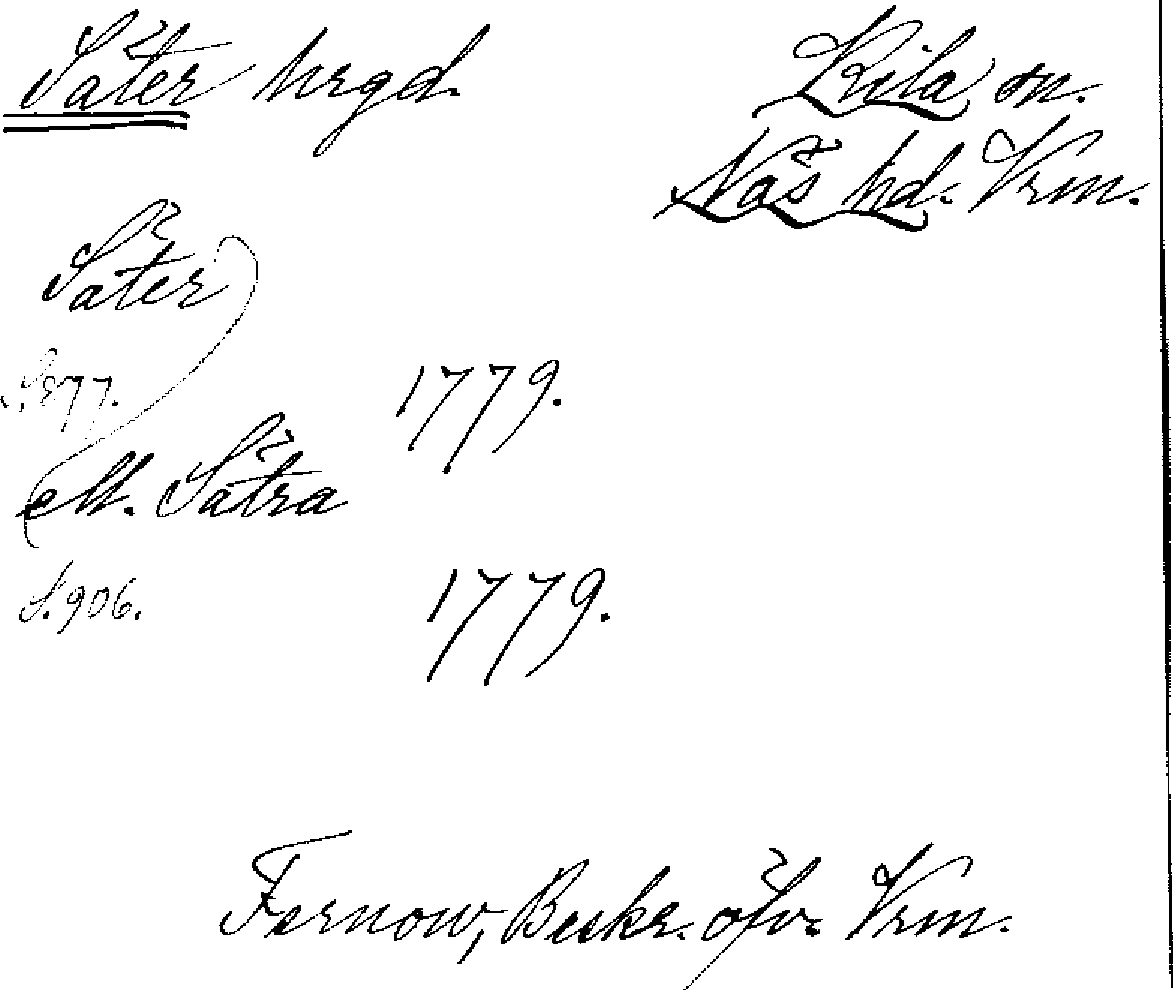 Säter hrgd.
Kila sn.
Näs hd. Vrm.
Säter
S. 877. 1779.
ell. Sätra
S. 906. 1779.
Fernow, Beskr. öfv. Vrm.